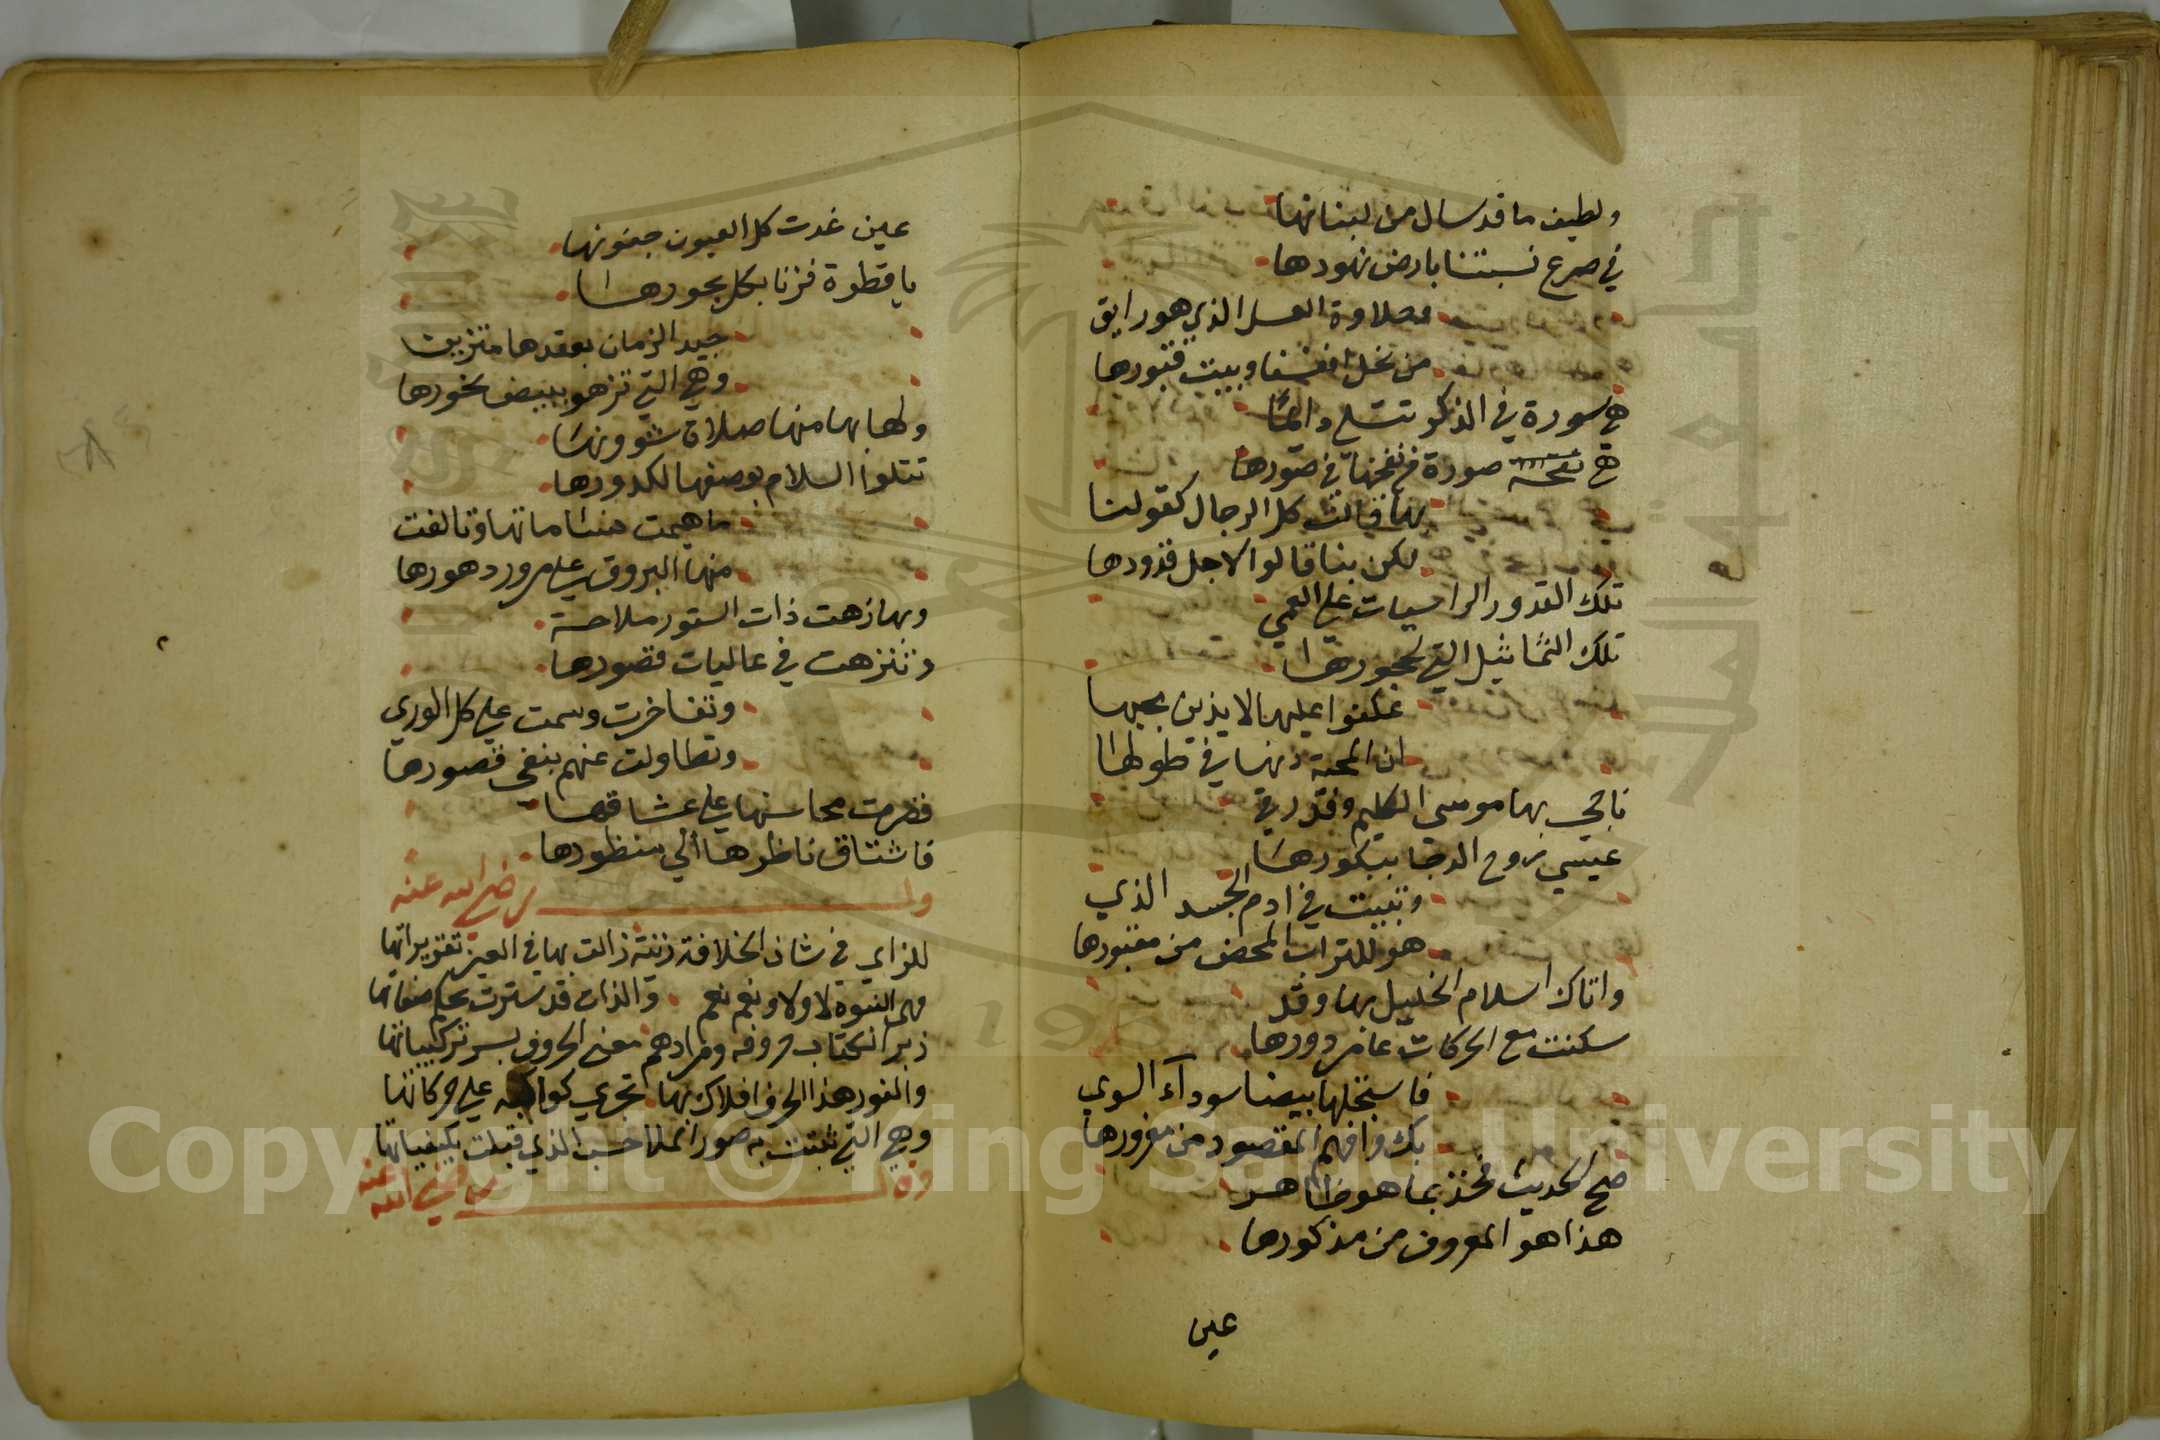 ولطيف ما قد سال من لبناتها
في صرع نسبتنا بارض نهودها
وحلاوة العسل الذي هو رايق
من نحل انفسنا وبيت قبورها
هي سورة في الذكر تتلى دائما
هي صورة في نفخها في صورها
بها قالت كل الرجال كقولنا
لكن بنا قالوا لاجل قدورها
تلك القدور الراسيات على العمي
تلك التماثيل التي بحجورها
عكفوا عليها لايذين بحبها
ان المحبة في طولها
ناجى بها موسى الكليم وقد رقى
عيسى بروح الدجا بتكورها
وتبينت في ادم الجسد الذي
هو للتراب المحض من مقبورها
واتاك اسلام الخليل بها وقد
سكنت مع الحركات عامر دورها
فاستجلها بيضا سودآء السوي
بك وافهم المقصود من مغرورها
صح الحديث فخذ بما هو ظاهر
هذا هو المعروف من مذكورها
عين
عين غدت كل العيون جفونها
يا قطرة فزنا بكل بحورها
جيد الزمان بعقدها متزين
وهي التي تزهو ببيض نحورها
ولها بها منها صلاة شوونها
تتلوا السلام بوصفها لكدورها
ما هيمت وتالفت
منها البروق على مرور دهورها
وبها زهت ذات الستور ملاحة
وتنزهت في عاليات قصورها
وتفاخرت وسمت على كل الوري
وتطاولت عنهم بنفي قصورها
فغرمت محاسنها على عشاقها
فاشتاق ناظرها الي منظورها
وله رضي الله عنه
للزاي في شان الخلافة زالت بها في العين تقديراتها
مهى النبوة لا ولا ونعم نعم والذات قد سترت بحكم صفاتها
زبر الكتاب حروفه ومرادهم معنى الحروف بسر تركيباتها
والنور هذا الحرف افلاك بها تجري كواكبه على حركاتها
وهي التي ثبتت به صور الملا حسب الذي قبلت بكيفياتها
وله رضي الله عنه
Copyright © King Saud University
1957